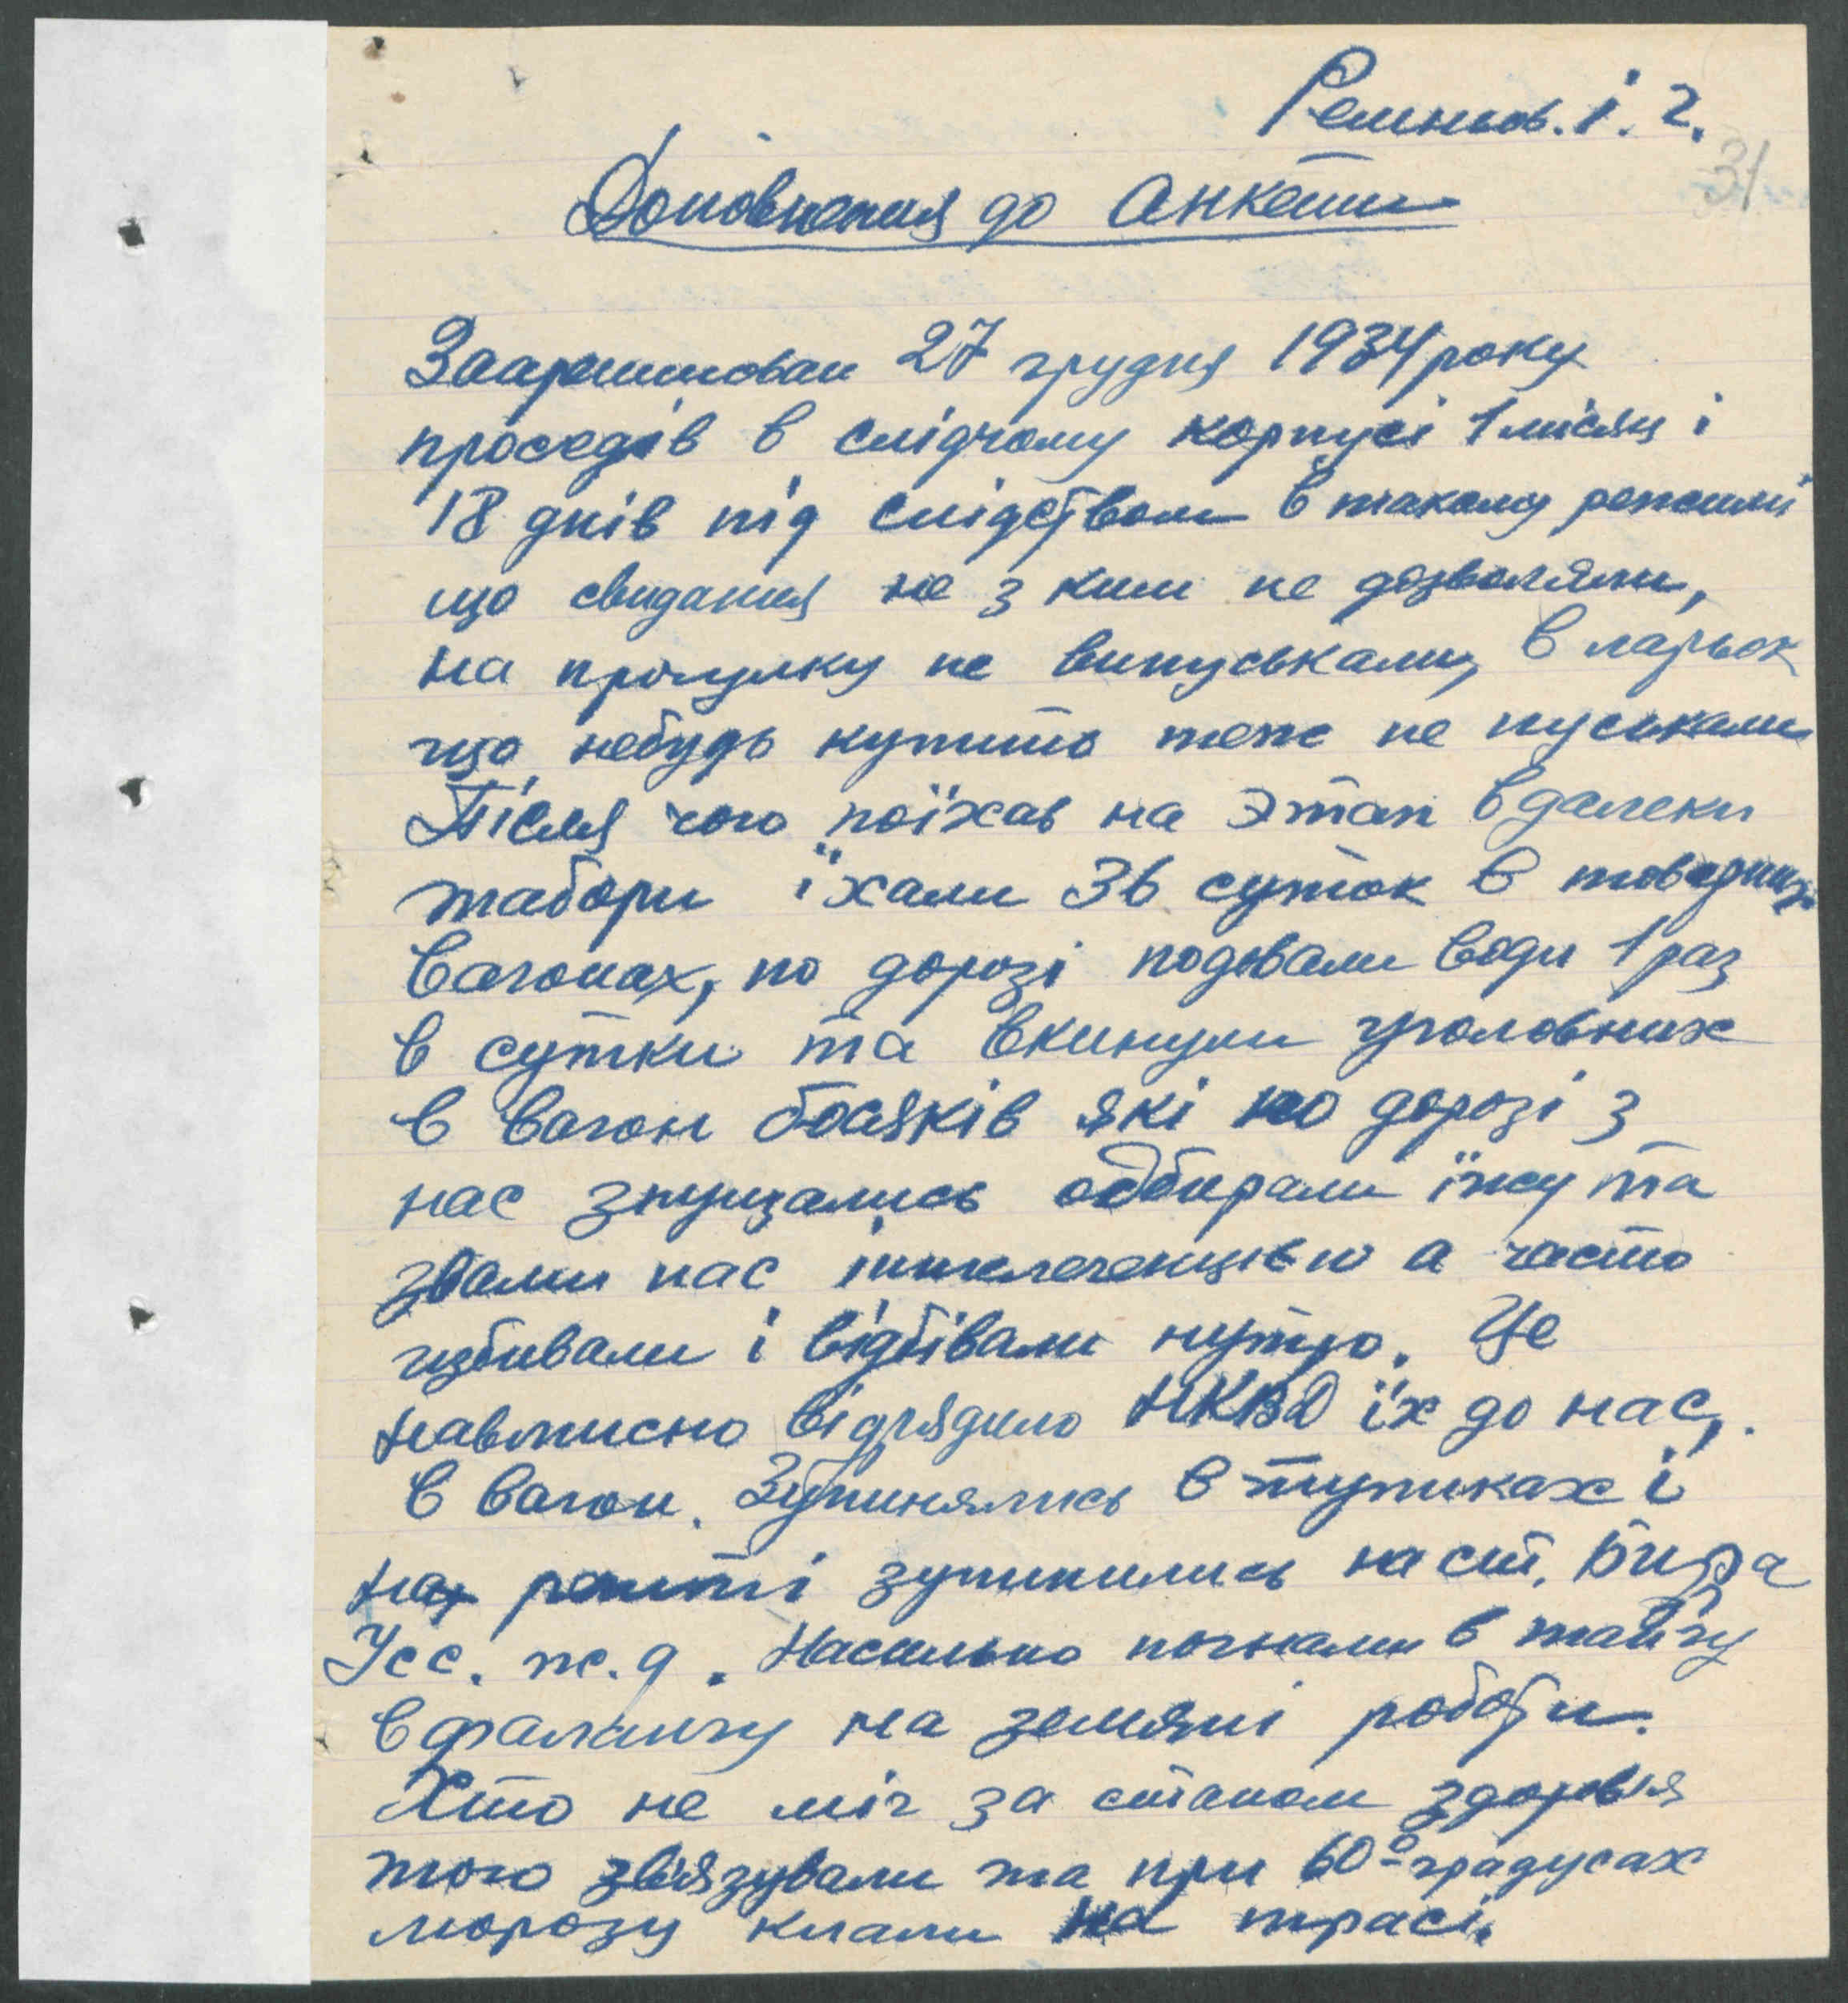 Решньов. І. Г.
31
Доповнення до Анкети
Заарештован 27 грудня 1934 року
проседів в слідчому корпусі 1 місяц і
18 днів під слідством в такому режимі
що свидання не з ким не дозволяли,
на прогулку не випуськали, в ларьок
що небудь купить теж не пуськали
Після чого поїхав на этап в далеки
табори їхали 36 суток в товарних
вагонах, по дорозі подавали води 1 раз
в сутки та вкинули уголовних
в вагон босяків які по дорозі з
нас знущались одбирали їжу та
звали нас інтелегенцією а часто
избивали і відбівали нутро. Це
навмисно відрядило НКВД їх до нас,
в вагон. Зупинялись в тупиках і
на решті зупинились на ст. Бира
Усс. ж. д. Насильно погнали в тайгу
в фалангу на земляні роботи.
Хто не міг за станом здоровья
того звязували та при 60° градусах
морозу клали на трасі.